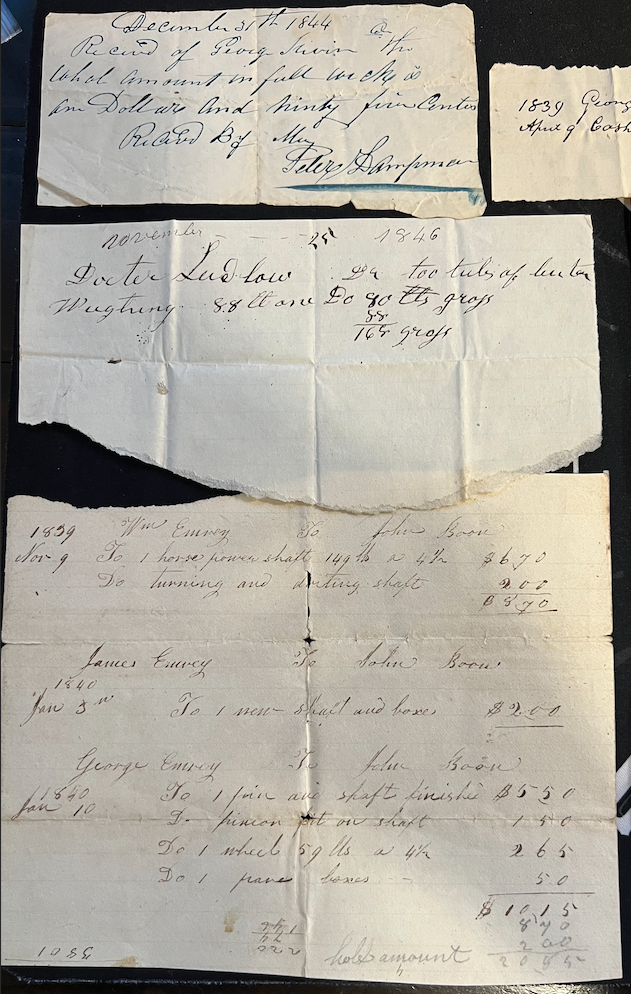 December 31th 1844
Recived of George Irwin the
whol amount in full wicks is
one Dollars and ninty five Centes
Recived By Me
Peter Lampman
1839 Georg
April 9 Cash
november - - - - 25 1846
Docter Ludlow Dr too tubs of buter
Weughing 88 lb one Do 80 lbs gross
88
168 gross
1839 Wm Emrey To John Boon
Nov 9 To 1 horse power shaft 149 lb a 4½ $6 7 0
Do turning and shaft 2 0 0
$ 8 7 0
James Emrey To John Boon
1840
Jan 3rd To 1 new shaft and boxes $2 0 0
George Emrey To John Boon
1840 To 1 pin and shaft finished $5 5 0
Jan 10 Do pinion put on shaft 1 5 0
Do 1 wheel 59 lbs a 4½ 2 6 5
Do 1 boxes - 5 0
$ 10 1 5
8 7 0
2 00
hole amount 20 8 5